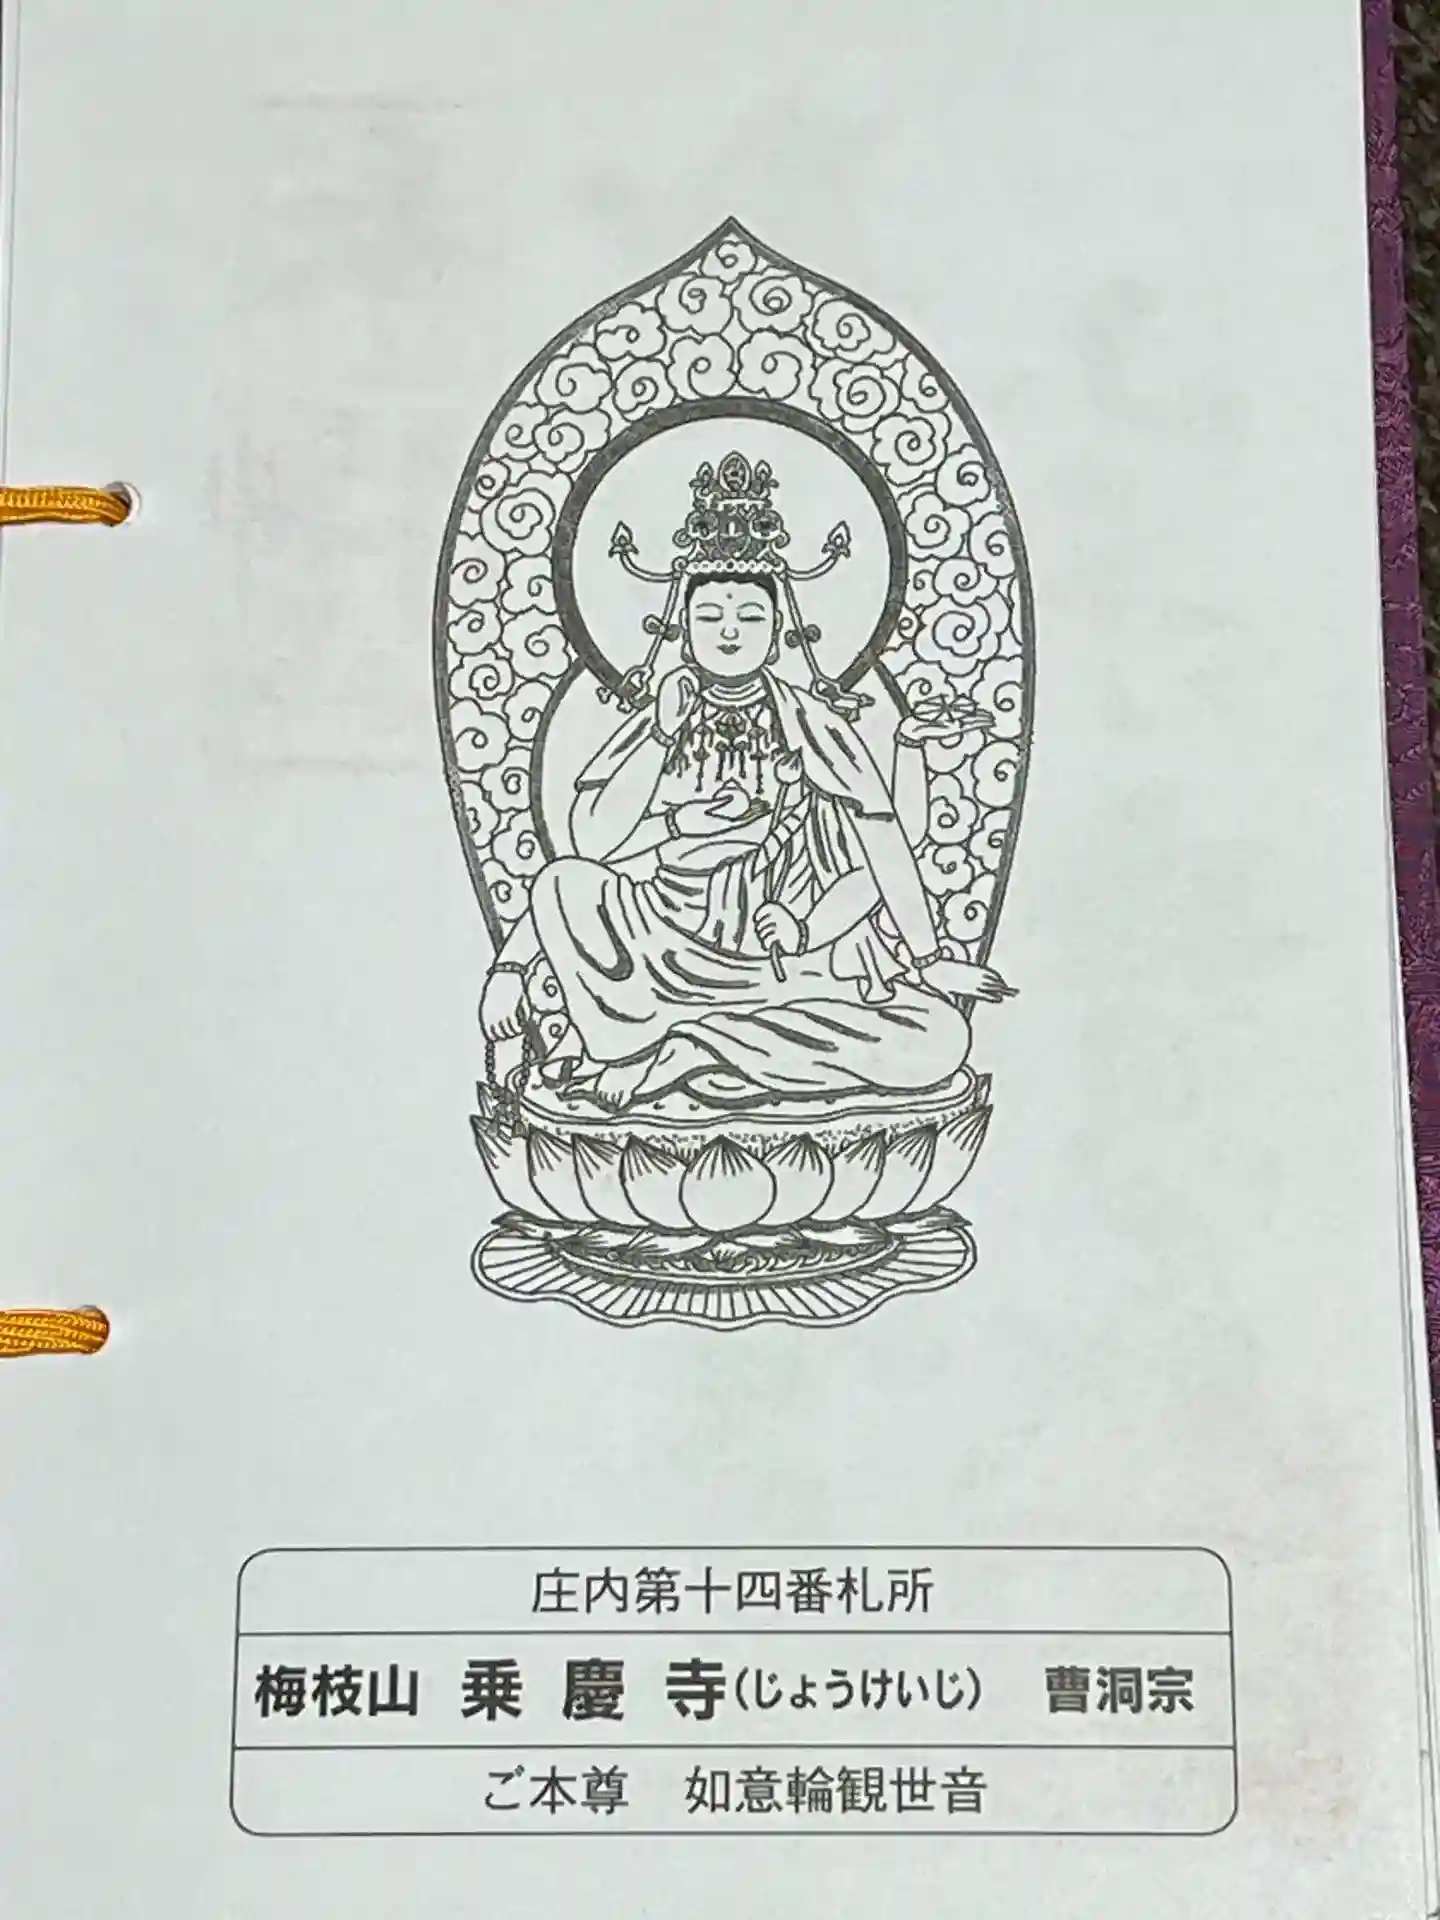 庄内第十四番札所
梅枝山 乗慶寺(じょうけいじ) 曹洞宗
ご本尊 如意輪観世音